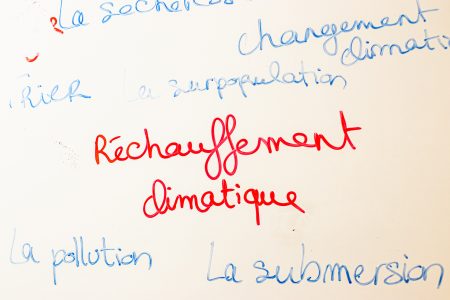 La sécheres
changement
climati
TRIER
La surpopulation
Réchauffement
climatique
La pollution
La submersion